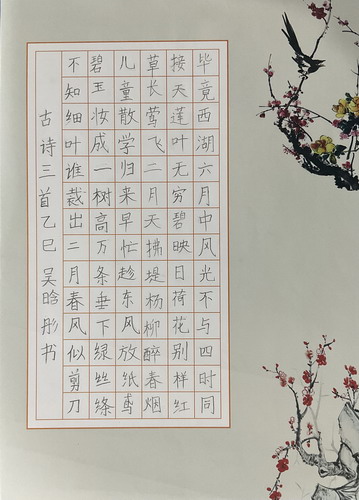 毕竟西湖六月中风光不与四时同
接天莲叶无穷碧映日荷花别样红
草长莺飞二月天拂堤杨柳醉春烟
儿童散学归来早忙趁东风放纸鸢
碧玉妆成一树高万条垂下绿丝绦
不知细叶谁裁出二月春风似剪刀
古诗三首乙巳 吴晗彤书